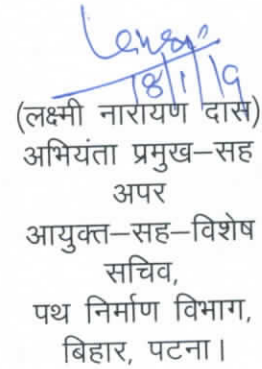 18/1/19
(लक्ष्मी नारायण दास)
अभियंता प्रमुख–सह
अपर
आयुक्त–सह–विशेष
सचिव,
पथ निर्माण विभाग,
बिहार, पटना।